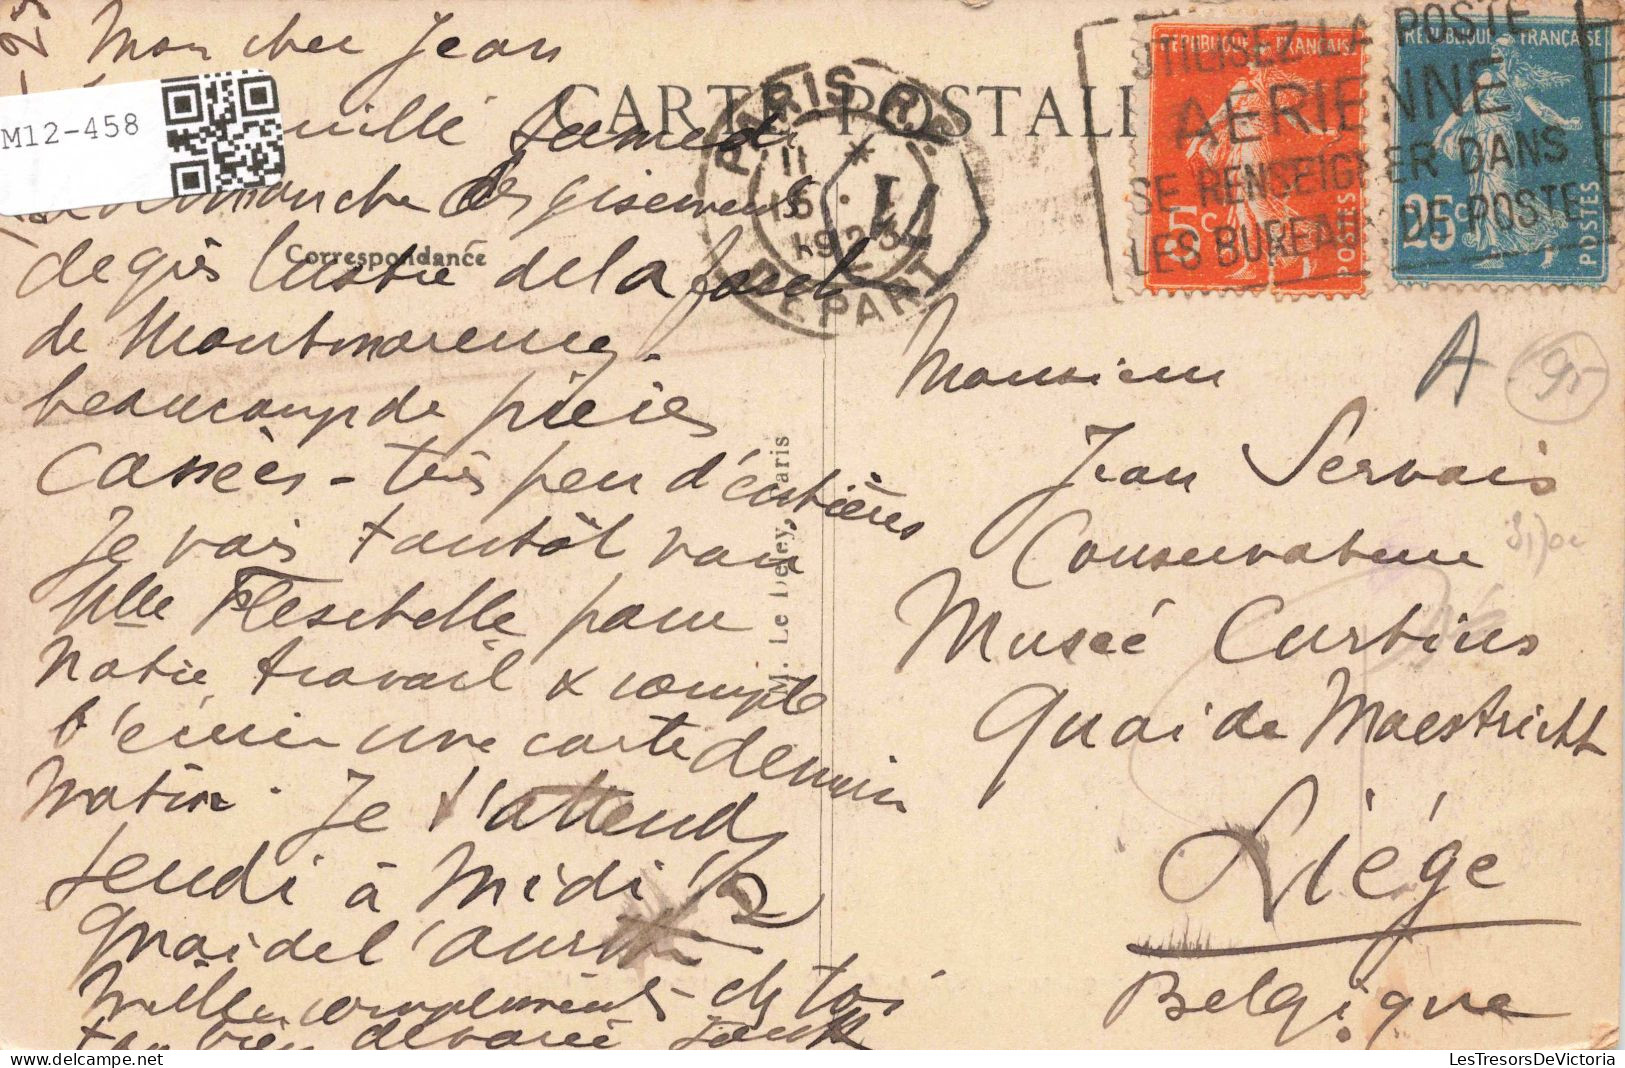 Mon cher Jean
M12-458
samedi
dimanche des gisements
de grès lustré de la forêt
de Montmorency.
beaucoup de pièces
cassées - très peu d'entières
Je vais tantôt voir
Mlle pour
notre travail & compte
t'écrire une carte demain
matin. Je t'attends
Jeudi à Midi 1/2
Quai de l'
Mille compliments
bien
CARTE POSTALE
Correspondance
M. Le Deley, Paris
PARIS R.P.
DEPART
II
15
1923
UTILISEZ LA POSTE
AERIENNE
SE RENSEIGNER DANS
LES BUREAUX DE POSTE
REPUBLIQUE FRANÇAISE
5c
POSTES
REPUBLIQUE FRANÇAISE
25c
POSTES
A
95
Monsieur
Jean Servais
Conservateur
Musée Curtius
Quai de Maestricht
Liége
Belgique
LesTresorsDeVictoria